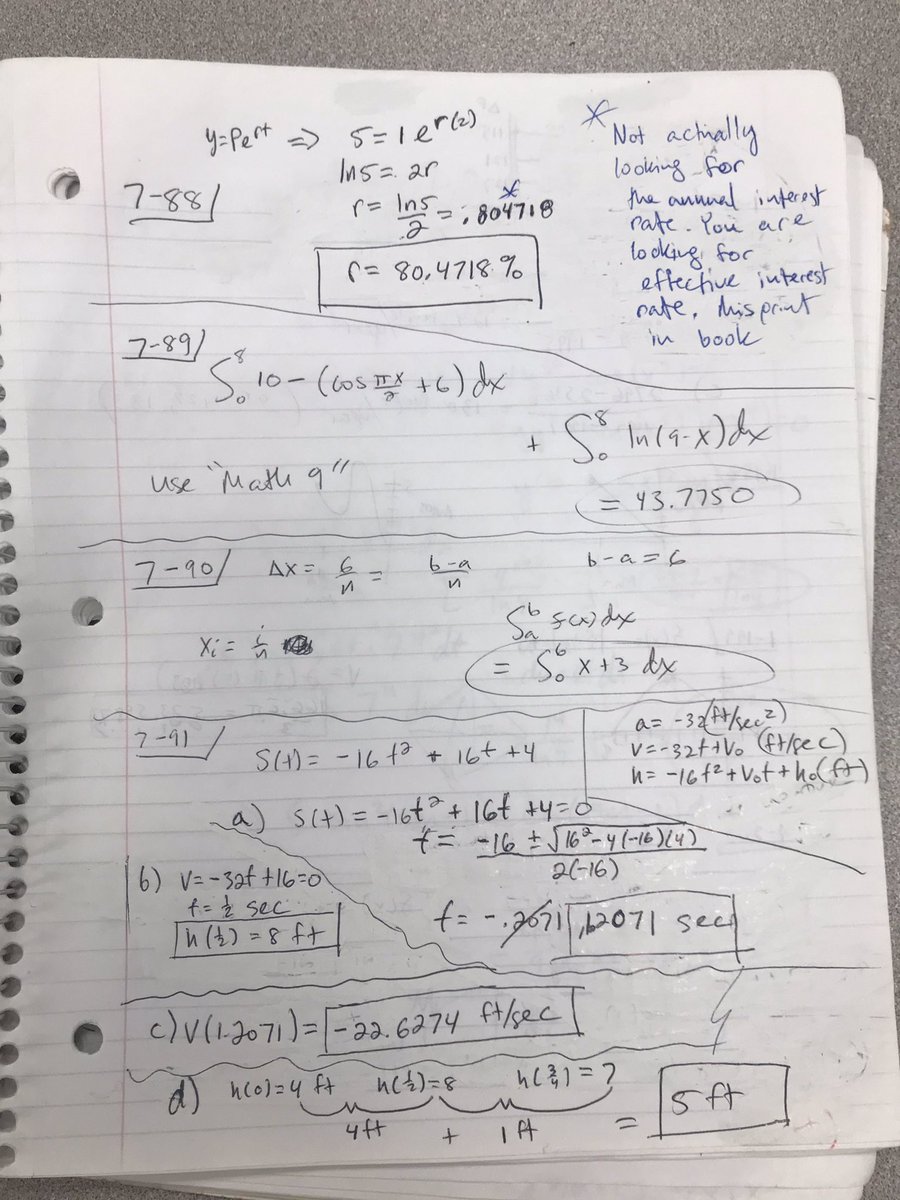 y=Pe^rt ⇒ 5=1e^r(2)
ln5= 2r
7-88/
r= ln5/2 = .804718 *
r= 80.4718 %
* Not actually
looking for
the annual interest
rate. You are
looking for
effective interest
rate. Misprint
in book
7-89/
∫₀⁸ 10-(cos πx/2 +6) dx
+ ∫₀⁸ ln(9-x)dx
use "Math 9"
= 43.7750
7-90/ Δx = 6/n = b-a/n b-a=6
∫ₐᵇ f(x) dx
xᵢ= i/n
= ∫₀⁶ x+3 dx
7-91/
S(t)= -16t² + 16t +4
a= -32(ft/sec²)
v=-32t+v₀ (ft/sec)
h= -16t²+v₀t+h₀(ft)
a) S(t) = -16t²+16t +4=0
t= -16 ± √16²-4(-16)(4) / 2(-16)
t= -.2071, 1.2071 sec
b) v=-32t+16=0
t=½ sec
h(½) = 8 ft
c) v(1.2071)= -22.6274 ft/sec
d) h(0)=4 ft h(½)=8 h(¾)=?
4ft + 1ft = 5ft